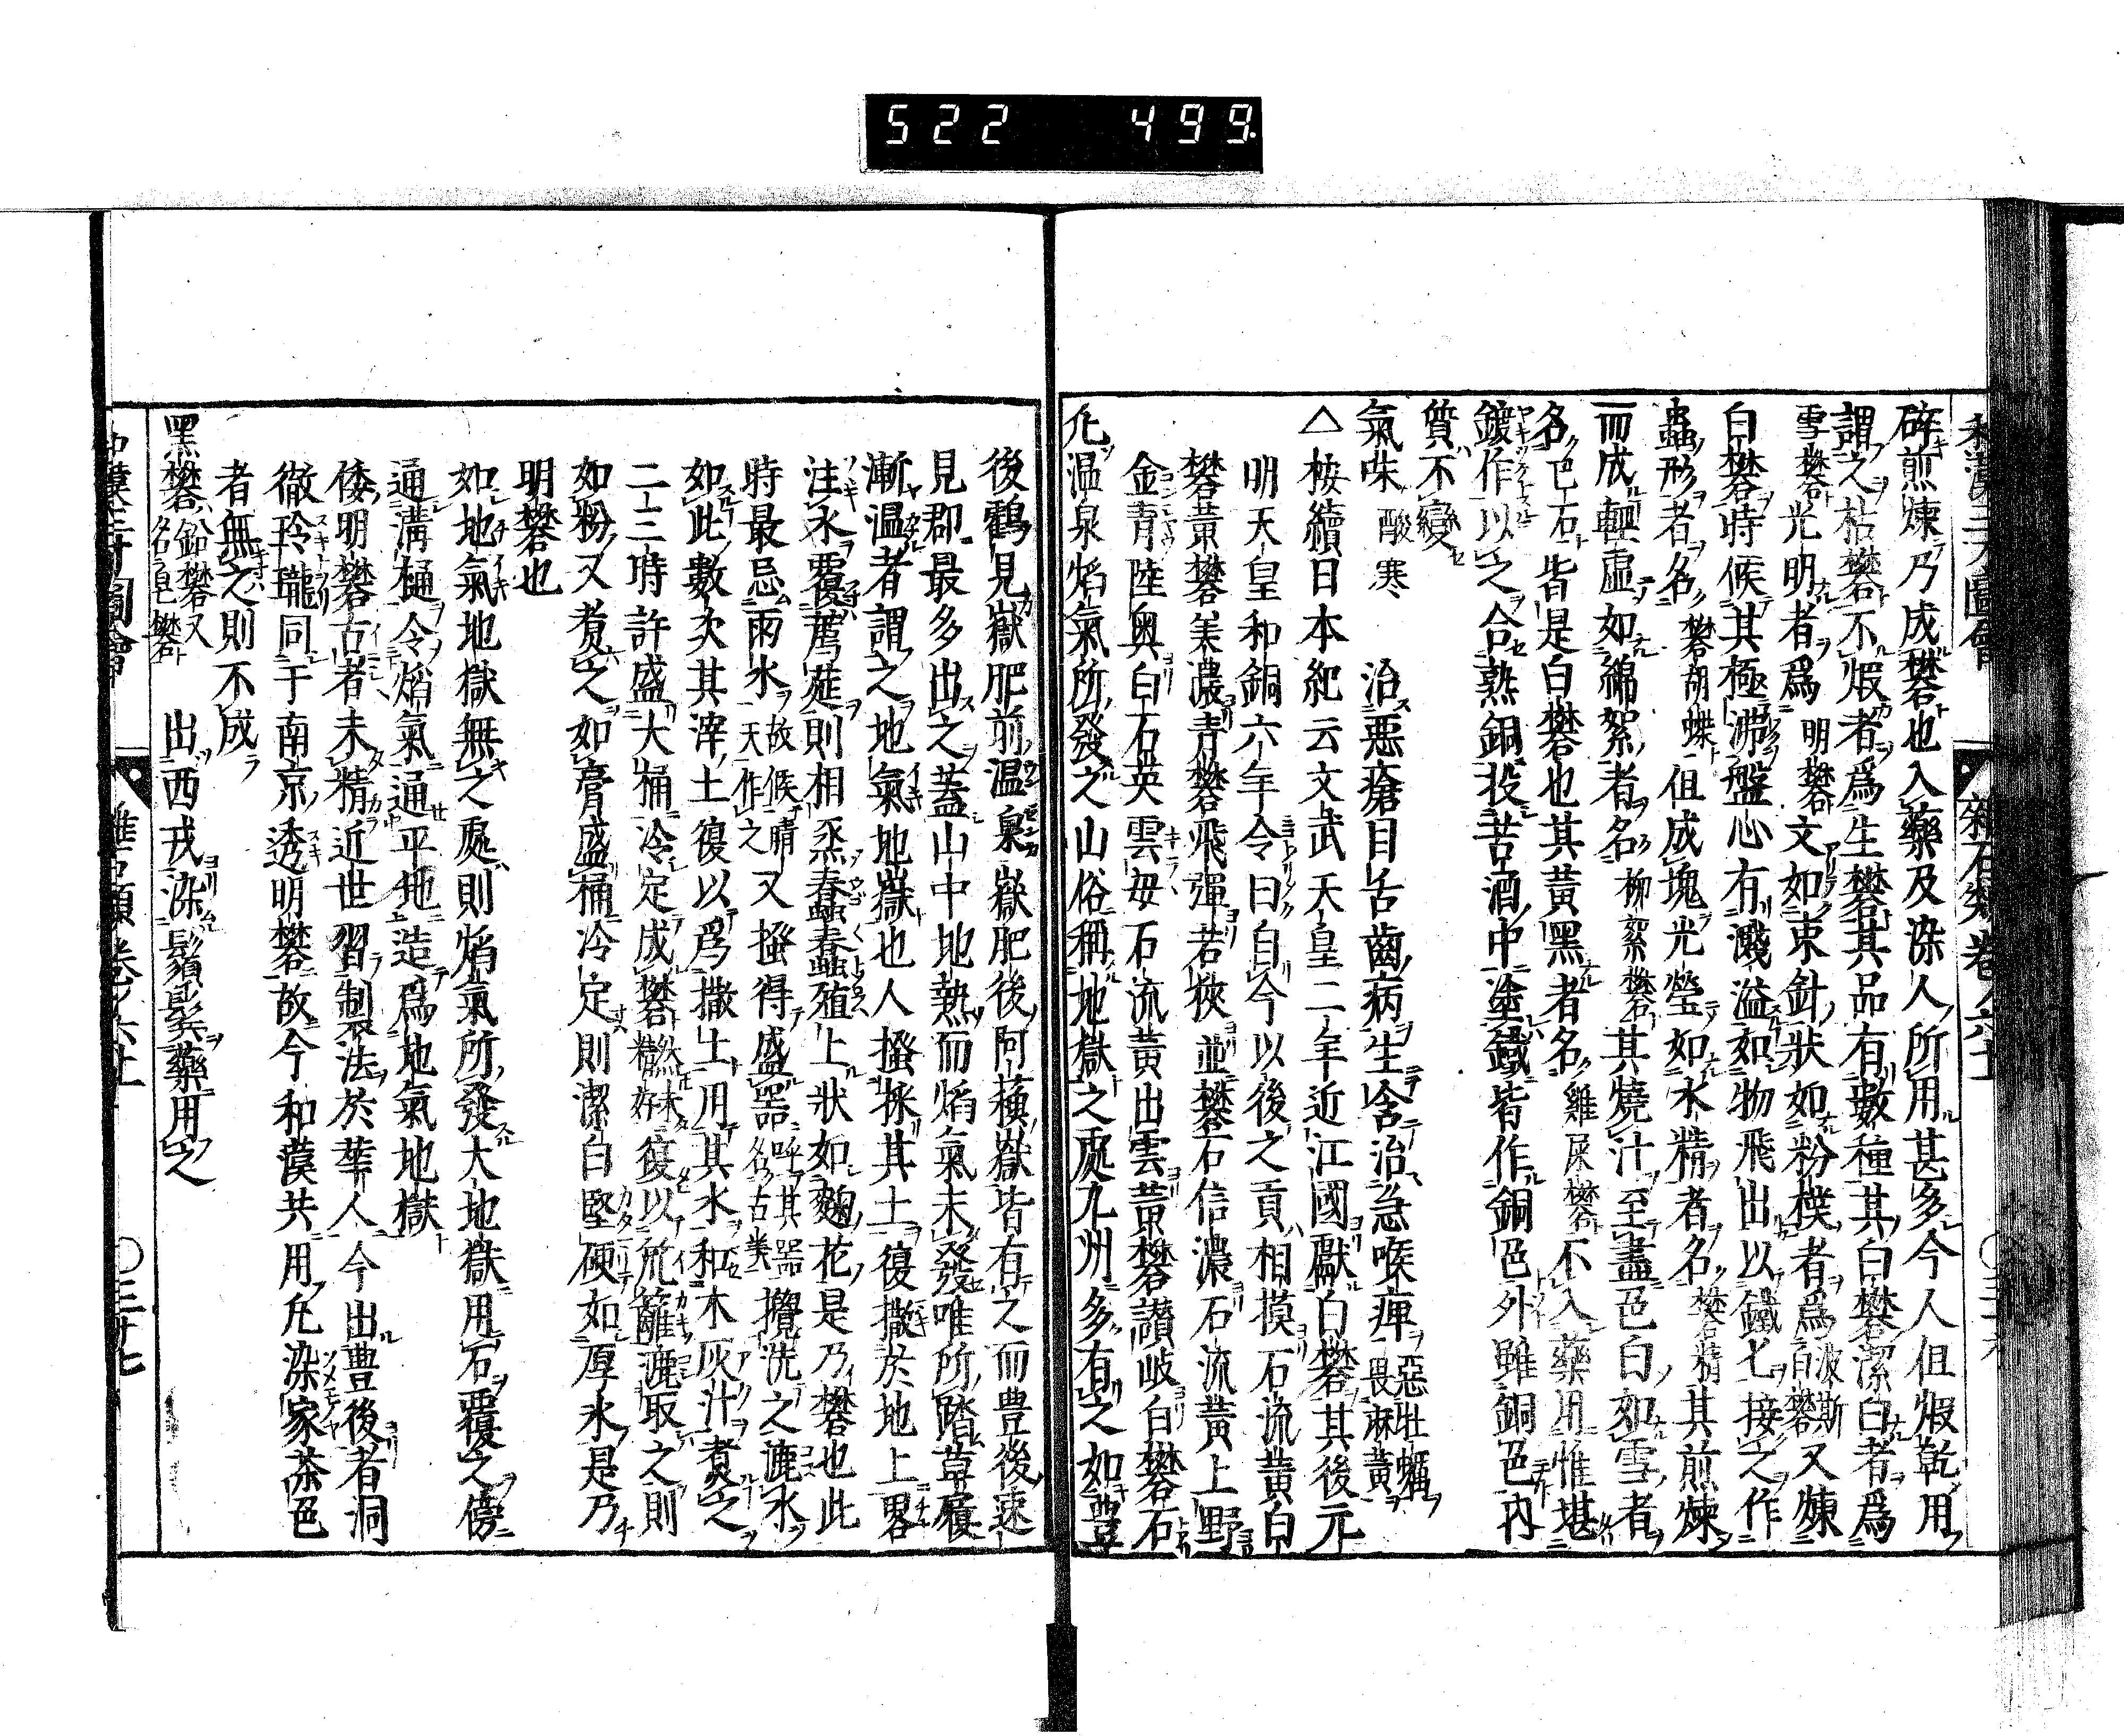 522 499
和漢三才圖會 雜石類 卷ノ六十一
碎煎煉乃成礬也入藥及染人所用甚多今人但煅乾用
謂之枯礬不煅者爲生礬其品有數種其白礬潔白者爲
雪礬光明者爲明礬文如束針狀如粉樸者爲波斯白礬又煉
白礬時候其極沸盤心有濺溢如物飛出以鐵匕接之作
蟲形者名礬胡蝶但成塊光瑩如水精者名礬精其煎煉
而成輕虛如綿絮者名柳絮礬其燒汁至盡色白如雪者
名巴石皆是白礬也其黃黑者名雞屎礬不入藥用惟堪
鍍作以之合熟銅投苦酒中塗鐵皆作銅色外雖銅色內
質不變
氣味酸寒 治惡瘡目舌齒病生含治急喉痺惡牡蠣畏麻黃
△桉續日本紀云文武天皇二年近江國獻白礬其後元
明天皇和銅六年令曰自今以後之貢相摸石流黃白
礬黃礬美濃青礬飛彈若狹並礬石信濃石流黃上野
金青陸奥白石英雲母石流黃出雲黃礬讃岐白礬石
凢温泉焰氣所發之山俗稱地獄之處九州多有之如豊
後鶴見嶽肥前温泉嶽肥後阿蘓嶽皆有之而豊後速
見郡最多出之蓋山中地熱而焰氣未發唯所踏草履
漸温者謂之地氣地嶽也人搔採其土復撒於地上畧
注水覆薦莚則相烝蠢蠢殖上狀如麹花是乃礬也此
時最忌雨水故候晴天作之又搔得盛器呼其器名古美攪洗之漉水
如此數次其滓土復以爲撒土用其水和木灰汁煑之
二三時許盛大桶冷定成礬然未精好復以笊籬漉取之則
如粉又煑之如膏盛桶冷定則潔白堅硬如厚氷是乃
明礬也
如地氣地獄無之處則焰氣所發大地獄用石覆之傍
通溝樋令焰氣通平地造爲地氣地獄
倭明礬古者未精近世習制法於華人今出豊後者洞
徹玲瓏同于南京透明礬故今和漢共用凢染家茶色
者無之則不成
黑礬鉛礬又名皂礬 出西戎染鬚髮藥用之
和漢三才圖會 雜石類 卷ノ六十一 〇三十七